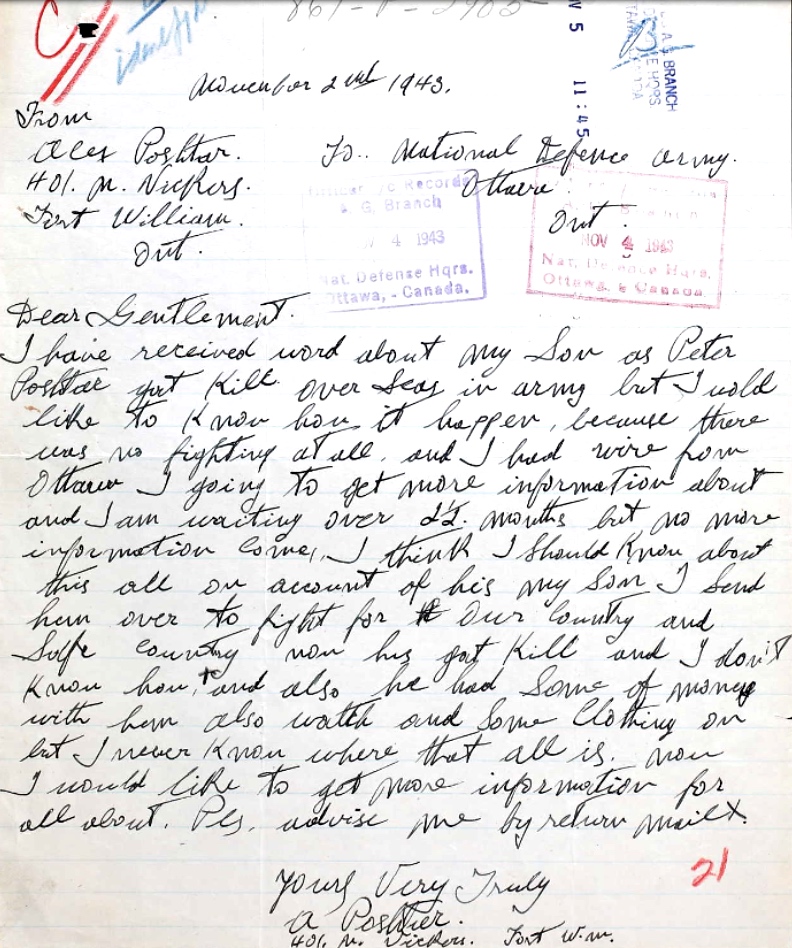 861-P-2905
November 2nd 1943.
From
Alex Poshtar. To.. National Defence Army.
401. N. Vickers. Ottawa
Fort William. Ont.
Ont.
V 5 11:45
BRANCH
G. Branch
4 1943
Nat. Defense Hqrs.
Ottawa, - Canada.
NOV 4 1943
Nat. Defence Hqrs.
Ottawa, Canada.
Dear Gentlement.
I have received word about my Son as Peter
Poshtar got Kill over Seas in army but I wold
like to Know how it happen, because there
was no fighting at all. and I had wire from
Ottawa I going to get more information about
and I am waiting over months but no more
information Come, I think I Should Know about
this all on account of his my Son I Send
him over to fight for Our Country and
Safe Country now his got Kill and I don't
Know how, and also he had Some of money
with him also watch and Some Clothing on
but I never Know where that all is. now
I would like to get more information for
all about. Pls. advise me by return mail.
21
Yours Very Truly
A Poshtar.
401. N. Vickers. Fort Wm.